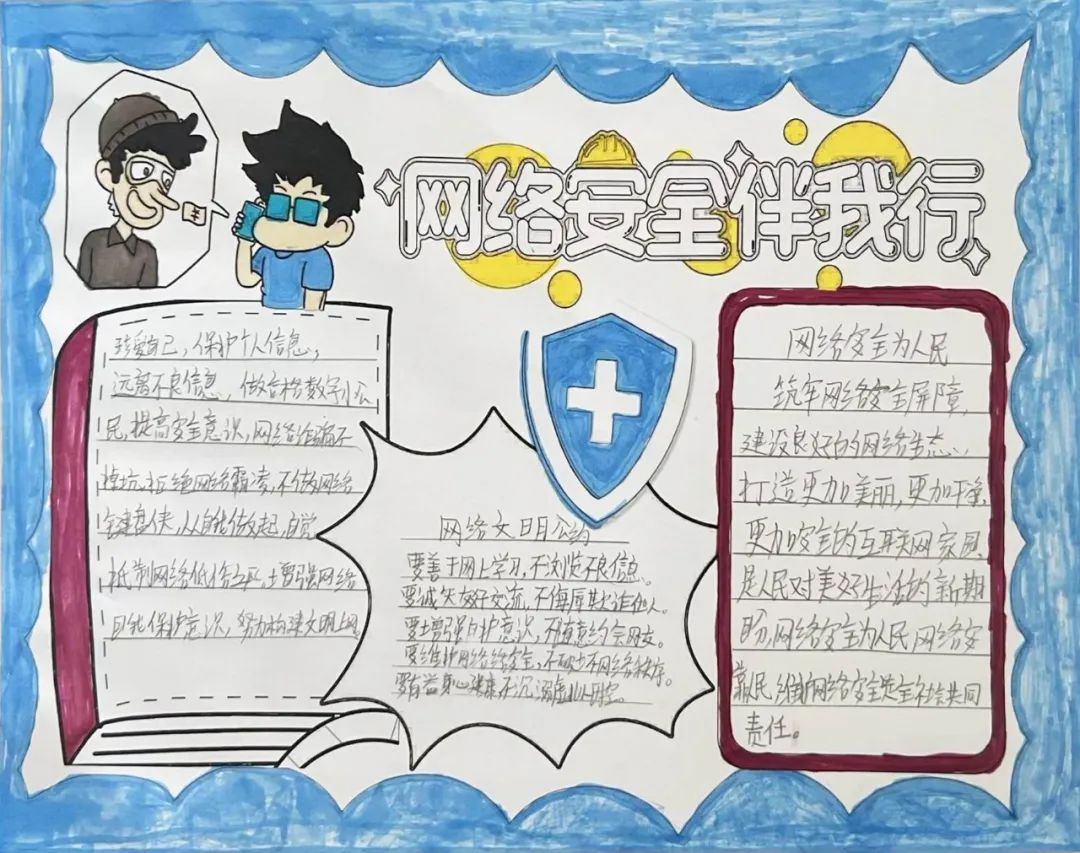 网络安全伴我行
珍爱自己，保护个人信息，
远离不良信息，做合格数字小公
民，提高安全意识，网络诈骗不
掉坑，拒绝网络霸凌，不做网络
键盘侠，从自我做起，自觉
抵制网络低俗之风，增强网络
自我保护意识，努力构建文明上网
网络文明公约
要善于网上学习，不浏览不良信息。
要诚实友好交流，不侮辱欺诈他人。
要增强自护意识，不随意约会网友。
要维护网络安全，不破坏网络秩序。
要有益身心健康，不沉溺虚拟时空。
网络安全为人民
筑牢网络安全屏障，
建设良好的网络生态、
打造更加美丽，更加干净，
更加安全的互联网家园
是人民对美好生活的新期
盼，网络安全为人民网络安
靠民，维护网络安全是全社会共同
责任。